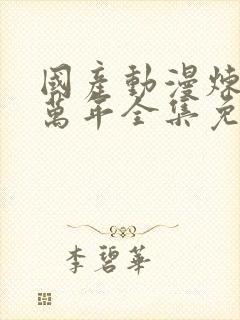 國產動漫煉
萬年全集免
李碧華